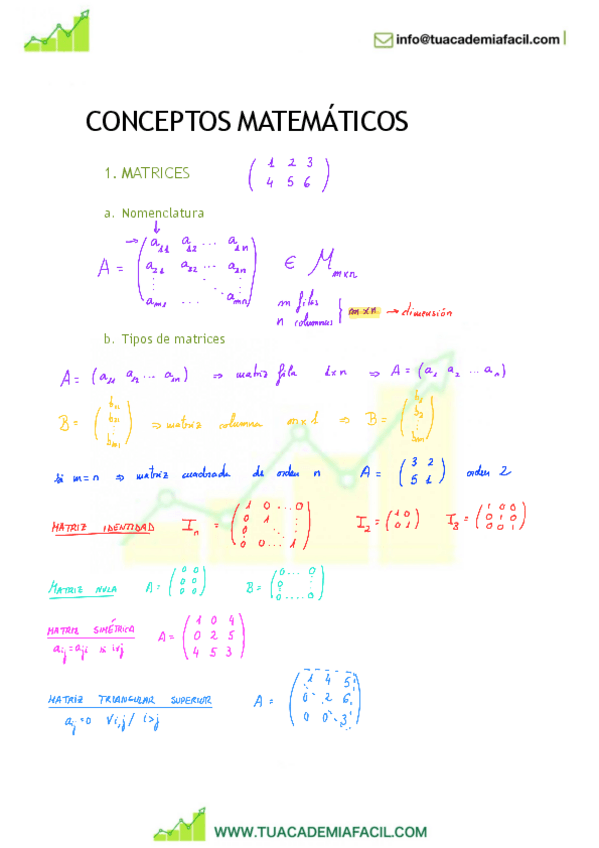 info@tuacademiafacil.com
CONCEPTOS MATEMÁTICOS
1. MATRICES ( 1 2 3
4 5 6 )
a. Nomenclatura
A = ( a₁₁ a₁₂ ... a₁ₙ
a₂₁ a₂₂ ... a₂ₙ
⋮ ⋮
aₘ₁ ... aₘₙ ) ∈ M m×n
m filas
n columnas } m×n → dimensión
b. Tipos de matrices
A = (a₁₁ a₁₂ ... a₁ₙ) ⇒ matriz fila 1×n ⇒ A = (a₁ a₂ ... aₙ)
B = ( b₁₁ b₂₁ ⋮ bₘ₁ ) ⇒ matriz columna m×1 ⇒ B = ( b₁ b₂ ⋮ bₘ )
Si m=n ⇒ matriz cuadrada de orden n A = ( 3 2
5 1 ) orden 2
MATRIZ IDENTIDAD Iₙ = ( 1 0 ... 0
0 1 ⋮
0 ⋱ ⋮
0 0 ... 1 ) I₂ = ( 1 0
0 1 ) I₃ = ( 1 0 0
0 1 0
0 0 1 )
MATRIZ NULA A = ( 0 0
0 0
0 0 ) B = ( 0 ... 0
0 ⋮
0 .... 0 )
MATRIZ SIMÉTRICA A = ( 1 0 4
0 2 5
4 5 3 )
aᵢⱼ = aⱼᵢ si i≠j
MATRIZ TRIANGULAR SUPERIOR A = ( 1 4 5
0 2 6
0 0 3 )
aᵢⱼ = 0 ∀i,j / i>j
WWW.TUACADEMIAFACIL.COM